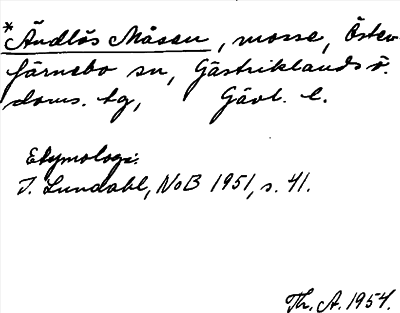 *Ändlös Måsen, mosse, Öster-
färnebo sn, Gästriklands ö.
doms. tg, Gävl. l.
Etymologi:
I. Lundahl, NoB 1951, s. 41.
Th. A. 1954.